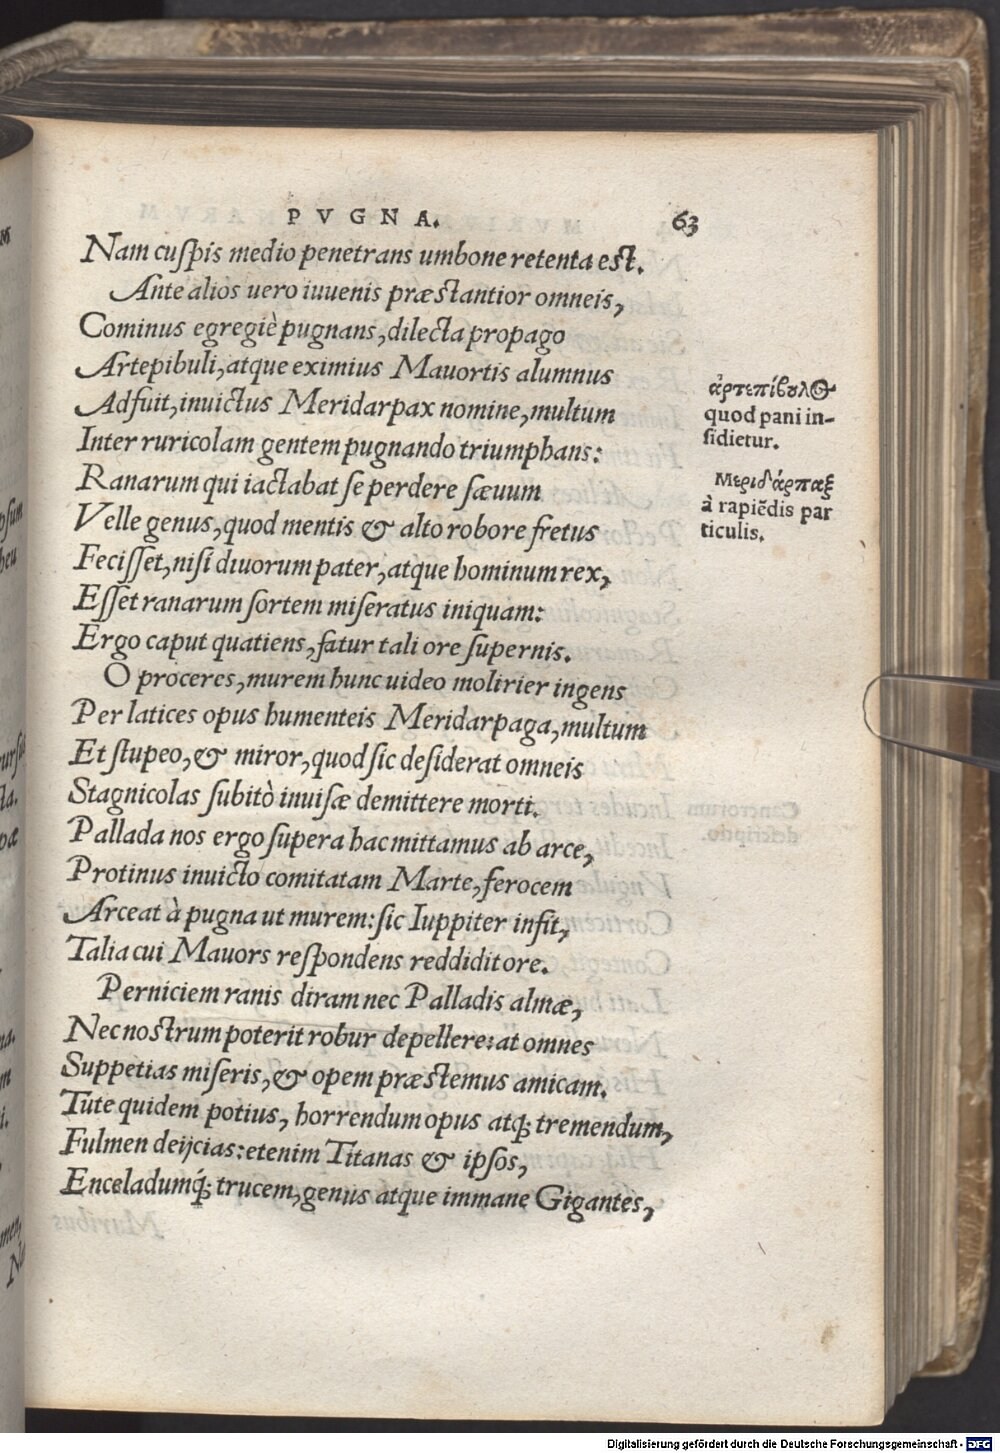 PVGNA. 63
Nam cuſpis medio penetrans umbone retenta est.
Ante alios uero iuuenis præstantior omneis,
Cominus egregiè pugnans, dilecta propago
Artepibuli, atque eximius Mauortis alumnus
Adfuit, inuictus Meridarpax nomine, multum
Inter ruricolam gentem pugnando triumphans:
Ranarum qui iactabat ſe perdere ſæuum
Velle genus, quod mentis & alto robore fretus
Feciſſet, niſi diuorum pater, atque hominum rex,
Eſſet ranarum ſortem miſeratus iniquam:
Ergo caput quatiens, fatur tali ore ſupernis.
O proceres, murem hunc uideo molirier ingens
Per latices opus humenteis Meridarpaga, multum
Et ſtupeo, & miror, quod ſic deſiderat omneis
Stagnicolas ſubitò inuiſæ demittere morti.
Pallada nos ergo ſupera hac mittamus ab arce,
Protinus inuicto comitatam Marte, ferocem
Arceat à pugna ut murem: ſic Iuppiter infit,
Talia cui Mauors reſpondens reddidit ore.
Perniciem ranis diram nec Palladis almæ,
Nec nostrum poterit robur depellere: at omnes
Suppetias miſeris, & opem præstemus amicam.
Tute quidem potius, horrendum opus atq; tremendum,
Fulmen deijcias: etenim Titanas & ipſos,
Enceladumq́; trucem, genus atque immane Gigantes,
ἀρτεπίβȣλος
quod pani in-
ſidietur.
Μεριδάρπαξ
à rapiẽdis par
ticulis.
Digitalisierung gefördert durch die Deutsche Forschungsgemeinschaft - DFG